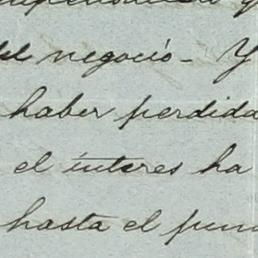 del negoció - Y
haber perdida
el interes ha
hasta el pun